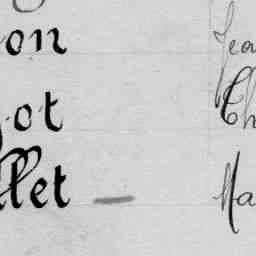 on Jea
ot Ch
llet Ma